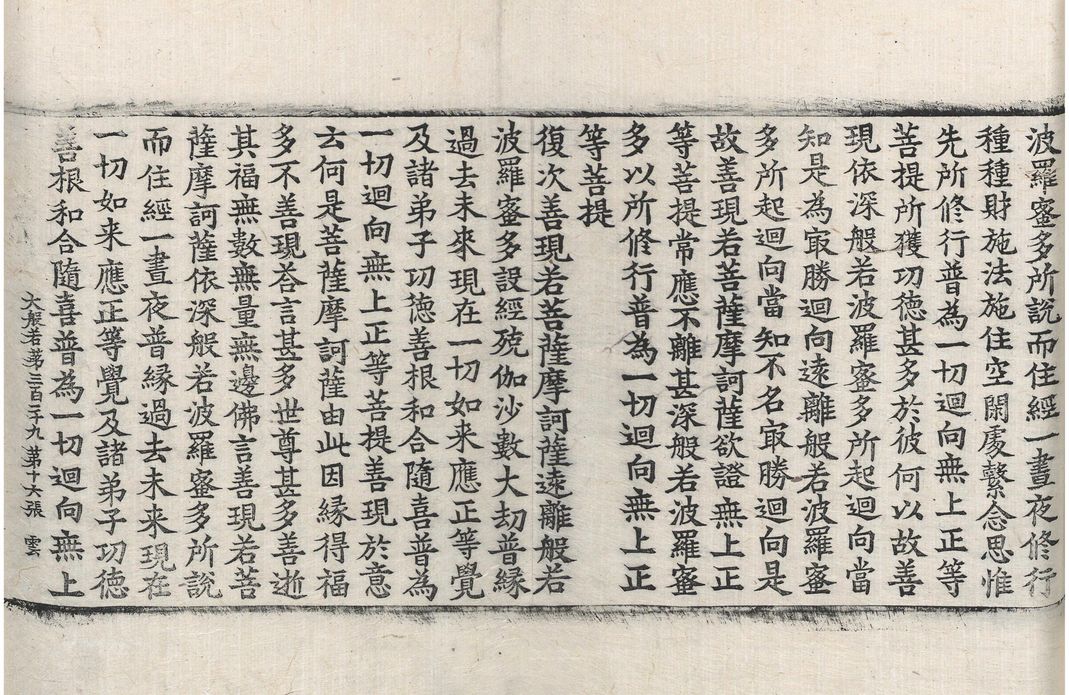 波羅蜜多所說而住經一晝夜修行
種種財施法施住空閑處繫念思惟
先所修行普為一切迴向無上正等
菩提所獲功德甚多於彼何以故善
現依深般若波羅蜜多所起迴向當
知是為㝡勝迴向遠離般若波羅蜜
多所起迴向當知不名㝡勝迴向是
故善現若菩薩摩訶薩欲證無上正
等菩提常應不離甚深般若波羅蜜
多以所修行普為一切迴向無上正
等菩提
復次善現若菩薩摩訶薩遠離般若
波羅蜜多設經殑伽沙數大劫普緣
過去未來現在一切如來應正等覺
及諸弟子功德善根和合隨喜普為
一切迴向無上正等菩提善現於意
云何是菩薩摩訶薩由此因緣得福
多不善現荅言甚多世尊甚多善逝
其福無數無量無邊佛言善現若菩
薩摩訶薩依深般若波羅蜜多所說
而住經一晝夜普緣過去未来現在
一切如来應正等覺及諸弟子功德
善根和合隨喜普為一切迴向無上
大般若第三百二十九 第十六張 雲